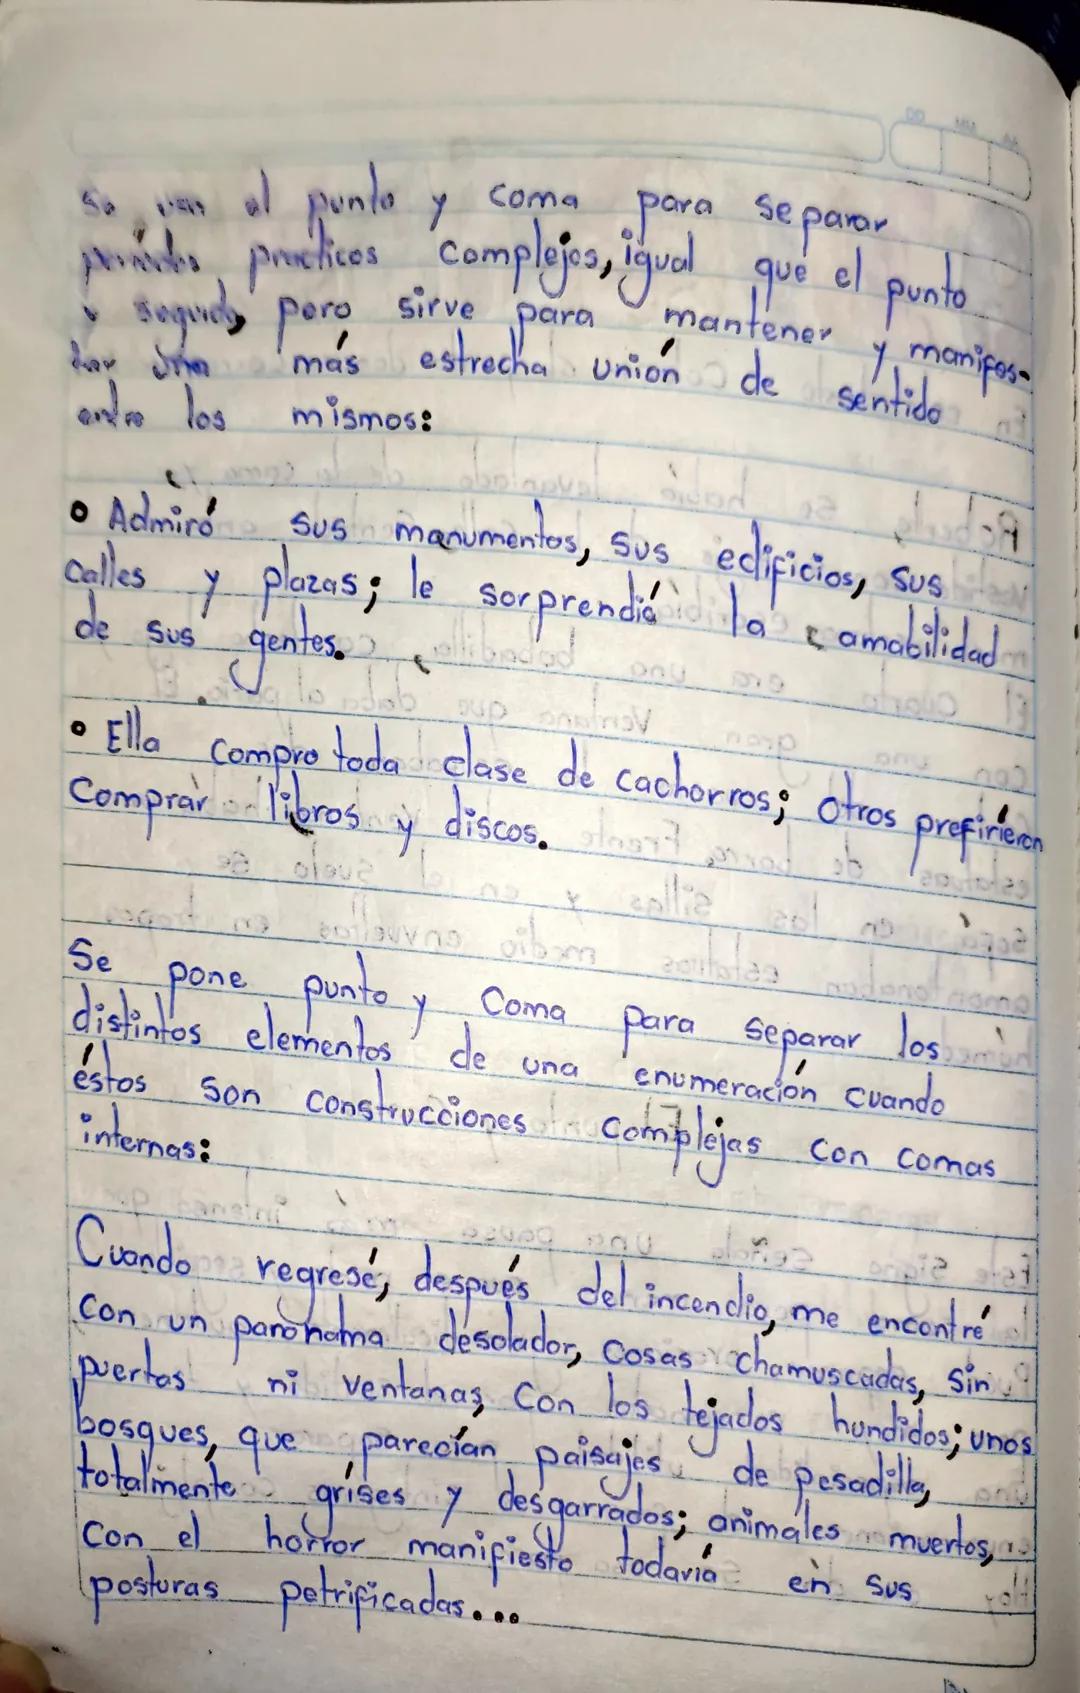 al punto y coma para separar
practicos complejos, igual que el punto
y seguido, pero sirve para mantener y manifes-
tar una más estrecha unión de sentido
entre los mismos:
• Admiró sus manumentos, sus edificios, sus
calles y plazas; le sorprendió la amabilidad
de sus gentes.
• Ella compro toda clase de cachorros; otros prefirieron
Comprar libros y discos.
Se pone punto y Coma para separar los
distintos elementos de una enumeración cuando
éstos son construcciones complejas con comas
internas:
Cuando regresé, después del incendio, me encontré
con un panorama desolador, cosas chamuscadas, sin
puertas ni ventanas, con los tejados hundidos; unos
bosques, que parecían paisajes de pesadilla,
totalmente grises y desgarrados; animales muertos,
con el horror manifiesto todavía en sus
posturas petrificadas...